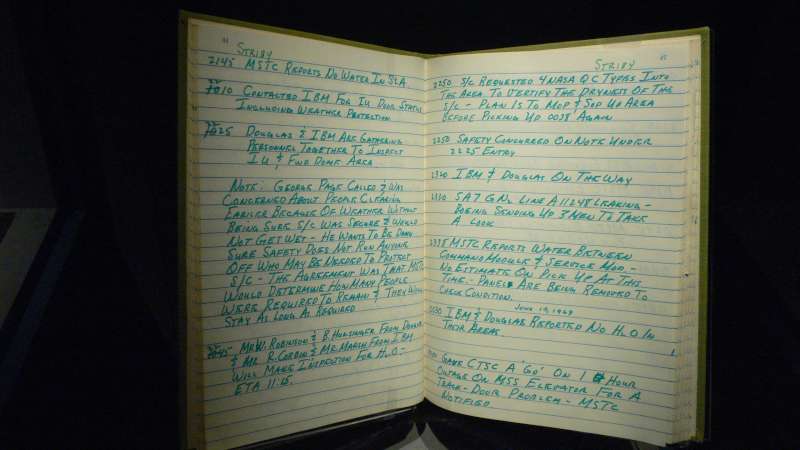 STRIBY
2145 MSTC REPORTS NO WATER IN SLA
CONTACTED IBM FOR IU DOOR STATUS
INCLUDING WEATHER PROTECTION
DOUGLAS & IBM ARE GATHERING
PERSONNEL TOGETHER TO INSPECT
IU & FWD DOME AREA
NOTE: GEORGE PAGE CALLED & WAS
CONCERNED ABOUT PEOPLE CLEARING
EARLIER BECAUSE OF WEATHER WITHOUT
BEING SURE S/C WAS SECURE & WOULD
NOT GET WET - HE WANTS TO BE DAMN
SURE SAFETY DOES NOT RUN ANYONE
OFF WHO MAY BE NEEDED TO PROTECT
S/C - THE AGREEMENT WAS THAT MSTC
WOULD DETERMINE HOW MANY PEOPLE
WERE REQUIRED TO REMAIN & THEY WOULD
STAY AS LONG AS REQUIRED
MR W. ROBINSON & B. HUNSINGER FROM
& MR. R. CORBIN & MR. MARSH FROM IBM
WILL MAKE INSPECTION FOR H2O -
ETA 11:15.
STRIBY
2250 S/C REQUESTED 4 NASA QC TYPES INTO
THE AREA TO VERTIFY THE DRYNESS OF THE
S/C - PLAN IS TO MOP & SOP UP AREA
BEFORE PICKING UP 0038 AGAIN
2250 SAFETY CONCURRED ON NOTE UNDER
2225 ENTRY
2320 IBM & DOUGLAS ON THE WAY
LINE A11248 LEAKING -
BOEING SENDING UP 3 MEN TO TAKE
A LOOK
2335 MSTC REPORTS WATER BETWEEN
COMMAND MODULE & SERVICE MOD. -
NO ESTIMATE ON PICK UP AT THIS
TIME. PANELS ARE BEING REMOVED TO
CHECK CONDITION.
JUNE 1969
IBM & DOUGLAS REPORTED NO H2O IN
THEIR AREAS
GAVE CTSC A "GO" ON 1 HOUR
OUTAGE ON MSS ELEVATOR FOR A
TRACK - DOOR PROBLEM - MSTC
NOTIFIED